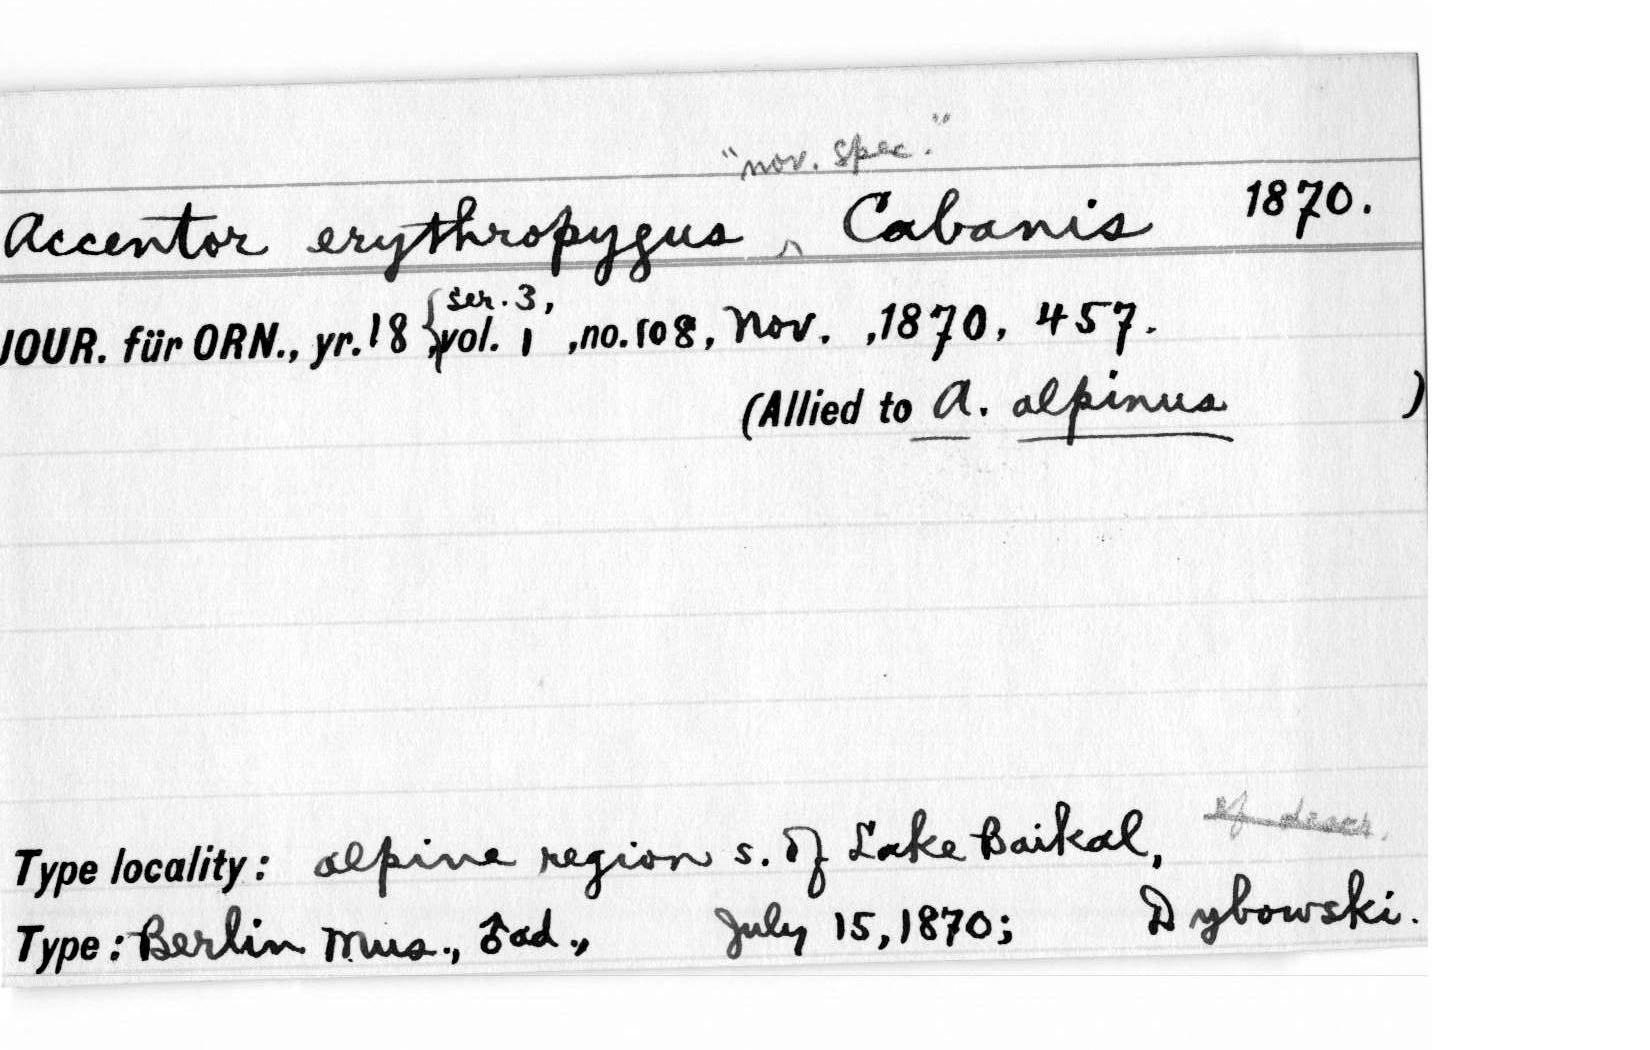 "nov. spec."
Accentor erythropygus ^ Cabanis 1870.
ser. 3,
JOUR. für ORN., yr. 18 { vol. 1 , no. 108, Nov. , 1870, 457.
(Allied to A. alpinus )
of descr.
Type locality: alpine region s. of Lake Baikal,
Type: Berlin Mus., ♂ ad., July 15, 1870; Dybowski.